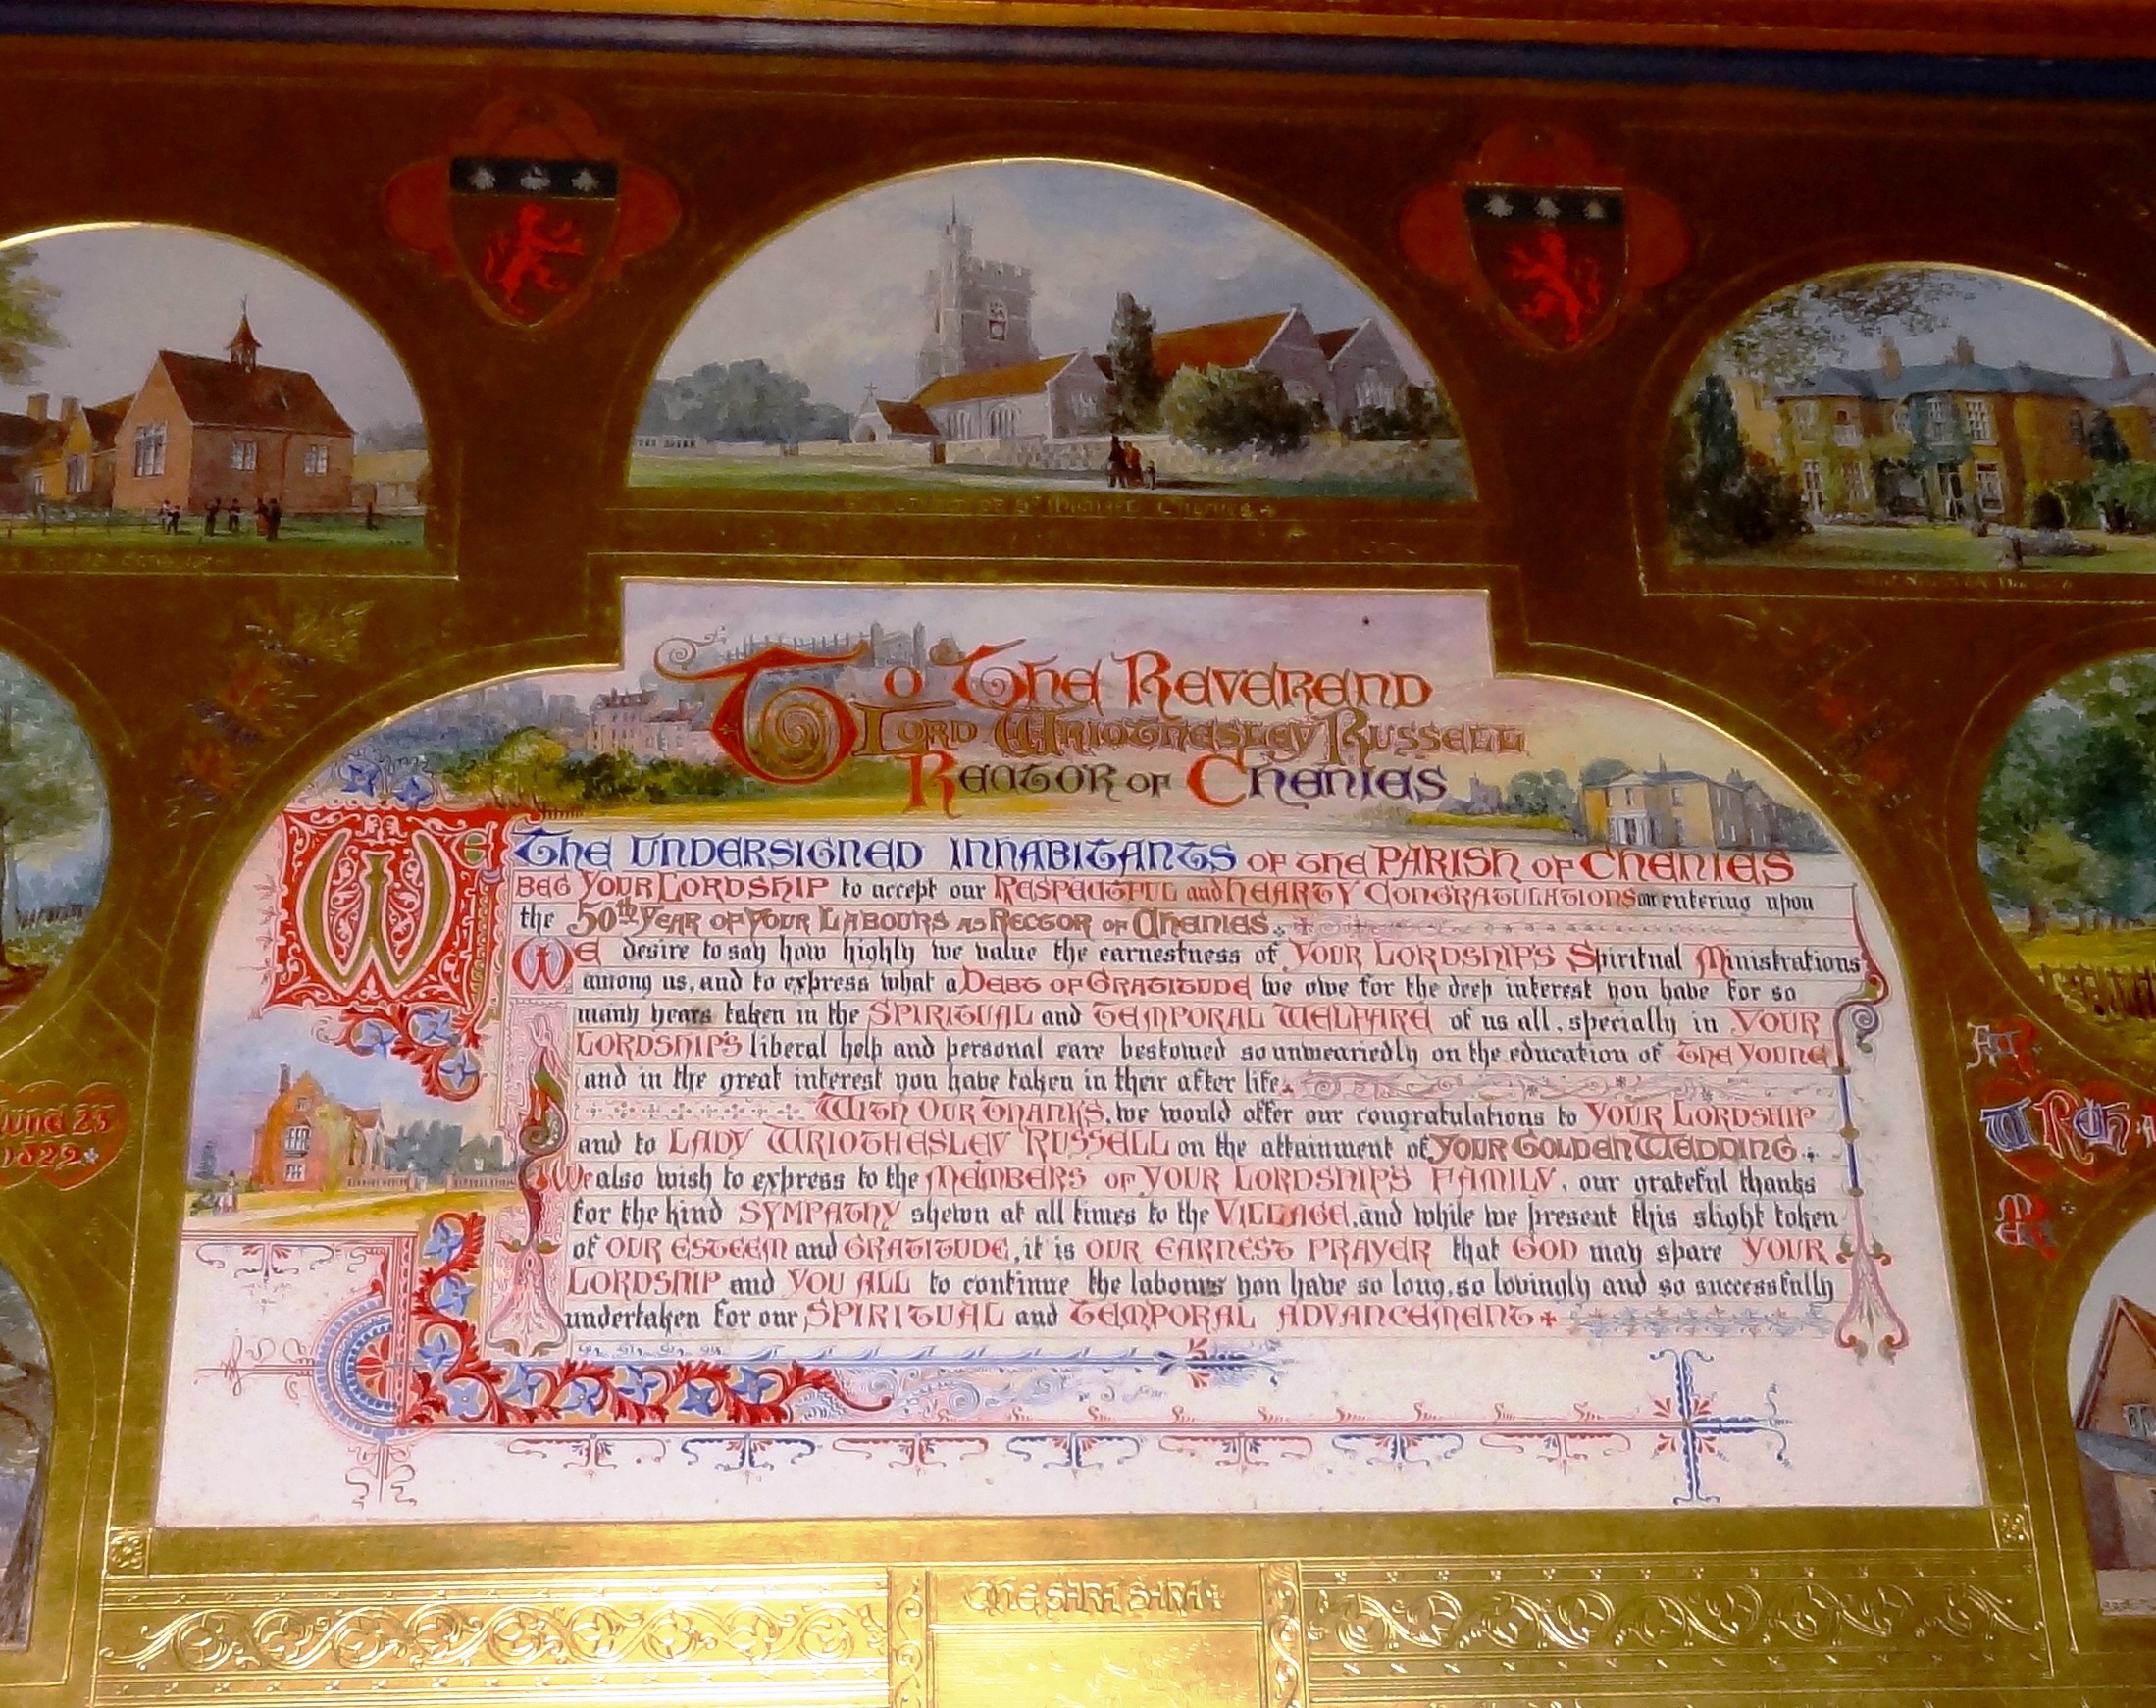 OF Sᵗ MICHAEL CHENIES
To The Reverend
Lord Wriothesley Russell
Rector of Chenies
We The Undersigned Inhabitants of the Parish of Chenies
beg your Lordship to accept our Respectful and hearty Congratulations on entering upon
the 50th Year of your Labours as Rector of Chenies.
We desire to say how highly we value the earnestness of your Lordship's Spiritual Ministrations
among us, and to express what a Debt of Gratitude we owe for the deep interest you have for so
many years taken in the Spiritual and Temporal Welfare of us all, specially in your
Lordship's liberal help and personal care bestowed so unweariedly on the education of the young
and in the great interest you have taken in their after life.
With our thanks, we would offer our congratulations to your Lordship
and to Lady Wriothesley Russell on the attainment of your Golden Wedding.
We also wish to express to the Members of your Lordship's Family, our grateful thanks
for the kind Sympathy shewn at all times to the Village, and while we present this slight token
of our Esteem and Gratitude, it is our earnest prayer that God may spare your
Lordship and you all to continue the labours you have so long, so lovingly and so successfully
undertaken for our Spiritual and Temporal Advancement
June 23
1829